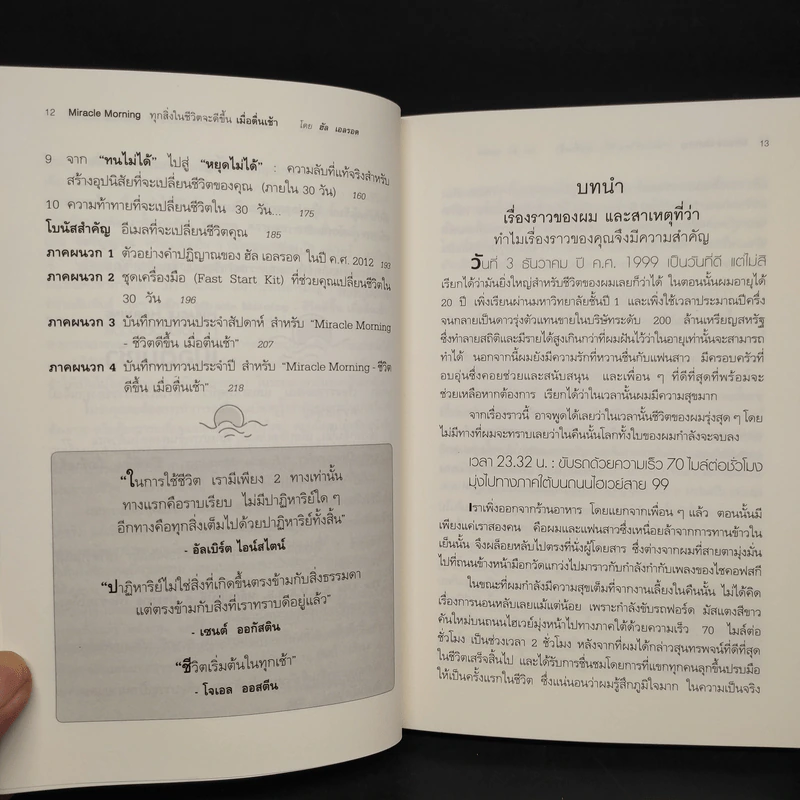 12 Miracle Morning ทุกสิ่งในชีวิตจะดีขึ้น เมื่อตื่นเช้า โดย ฮัล เอลรอด
9 จาก "ทนไม่ได้" ไปสู่ "หยุดไม่ได้" : ความลับที่แท้จริงสำหรับ
สร้างอุปนิสัยที่จะเปลี่ยนชีวิตของคุณ (ภายใน 30 วัน) 160
10 ความท้าทายที่จะเปลี่ยนชีวิตใน 30 วัน... 175
โบนัสสำคัญ อีเมลที่จะเปลี่ยนชีวิตคุณ 185
ภาคผนวก 1 ตัวอย่างคำปฏิญาณของ ฮัล เอลรอด ในปี ค.ศ. 2012 193
ภาคผนวก 2 ชุดเครื่องมือ (Fast Start Kit) ที่ช่วยคุณเปลี่ยนชีวิตใน
30 วัน 196
ภาคผนวก 3 บันทึกทบทวนประจำสัปดาห์ สำหรับ "Miracle Morning
- ชีวิตดีขึ้น เมื่อตื่นเช้า" 207
ภาคผนวก 4 บันทึกทบทวนประจำปี สำหรับ "Miracle Morning - ชีวิต
ดีขึ้น เมื่อตื่นเช้า" 218
"ในการใช้ชีวิต เรามีเพียง 2 ทางเท่านั้น
ทางแรกคือราบเรียบ ไม่มีปาฏิหาริย์ใด ๆ
อีกทางคือทุกสิ่งเต็มไปด้วยปาฏิหาริย์ทั้งสิ้น"
- อัลเบิร์ต ไอน์สไตน์
"ปาฏิหาริย์ไม่ใช่สิ่งที่เกิดขึ้นตรงข้ามกับสิ่งธรรมดา
แต่ตรงข้ามกับสิ่งที่เราทราบดีอยู่แล้ว"
- เซนต์ ออกัสติน
"ชีวิตเริ่มต้นในทุกเช้า"
- โจเอล ออสตีน
13
บทนำ
เรื่องราวของผม และสาเหตุที่ว่า
ทำไมเรื่องราวของคุณจึงมีความสำคัญ
วันที่ 3 ธันวาคม ปี ค.ศ. 1999 เป็นวันที่ดี แต่ไม่สิ
เรียกได้ว่ามันยิ่งใหญ่สำหรับชีวิตของผมเลยก็ว่าได้ ในตอนนั้นผมอายุได้
20 ปี เพิ่งเรียนผ่านมหาวิทยาลัยชั้นปี 1 และเพิ่งใช้เวลาประมาณปีครึ่ง
จนกลายเป็นดาวรุ่งตัวแทนขายในบริษัทระดับ 200 ล้านเหรียญสหรัฐ
ซึ่งทำลายสถิติและมีรายได้สูงเกินกว่าที่ผมฝันไว้ว่าในอายุเท่านั้นจะสามารถ
ทำได้ นอกจากนี้ผมยังมีความรักที่หวานชื่นกับแฟนสาว มีครอบครัวที่
อบอุ่นซึ่งคอยช่วยและสนับสนุน และเพื่อน ๆ ที่ดีที่สุดที่พร้อมจะ
ช่วยเหลือหากต้องการ เรียกได้ว่าในเวลานั้นผมมีความสุขมาก
จากเรื่องราวนี้ อาจพูดได้เลยว่าในเวลานั้นชีวิตของผมรุ่งสุด ๆ โดย
ไม่มีทางที่ผมจะทราบเลยว่าในคืนนั้นโลกทั้งใบของผมกำลังจะจบลง
เวลา 23.32 น. : ขับรถด้วยความเร็ว 70 ไมล์ต่อชั่วโมง
มุ่งไปทางภาคใต้บนถนนไฮเวย์สาย 99
เราเพิ่งออกจากร้านอาหาร โดยแยกจากเพื่อน ๆ แล้ว ตอนนั้นมี
เพียงแค่เราสองคน คือผมและแฟนสาวซึ่งเหนื่อยล้าจากการทานข้าวใน
เย็นนั้น จึงผล็อยหลับไปตรงที่นั่งผู้โดยสาร ซึ่งต่างจากผมที่สายตามุ่งมั่น
ไปที่ถนนข้างหน้ามือกวัดแกว่งไปมาราวกับกำลังกำกับเพลงของไชคอฟสกี
ในขณะที่ผมกำลังมีความสุขเต็มที่จากงานเลี้ยงในคืนนั้น ไม่ได้คิด
เรื่องการนอนหลับเลยแม้แต่น้อย เพราะกำลังขับรถฟอร์ด มัสแตงสีขาว
คันใหม่บนถนนไฮเวย์มุ่งหน้าไปทางภาคใต้ด้วยความเร็ว 70 ไมล์ต่อ
ชั่วโมง เป็นช่วงเวลา 2 ชั่วโมง หลังจากที่ผมได้กล่าวสุนทรพจน์ที่ดีที่สุด
ในชีวิตเสร็จสิ้นไป และได้รับการชื่นชมโดยการที่แขกทุกคนลุกขึ้นปรบมือ
ให้เป็นครั้งแรกในชีวิต ซึ่งแน่นอนว่าผมรู้สึกภูมิใจมาก ในความเป็นจริง